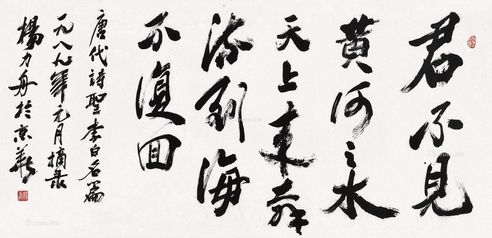 君不見
黄河之水
天上来奔
流到海
不復回
唐代詩聖李白名篇
一九八九年元月摘录
楊力舟於京華